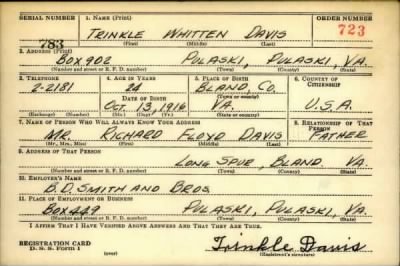 SERIAL NUMBER 1. NAME (Print) ORDER NUMBER
783 TRINKLE WHITTEN DAVIS 723
(First) (Middle) (Last)
2. ADDRESS (Print)
BOX 902 PULASKI, PULASKI, VA.
(Number and street or R. F. D. number) (Town) (County) (State)
3. TELEPHONE 4. AGE IN YEARS 5. PLACE OF BIRTH 6. COUNTRY OF CITIZENSHIP
2-2181 24 BLAND, CO.
DATE OF BIRTH (Town or county)
OCT. 13, 1916 VA. U.S.A.
(Exchange) (Number) (Mo.) (Day) (Yr.) (State or country)
7. NAME OF PERSON WHO WILL ALWAYS KNOW YOUR ADDRESS 8. RELATIONSHIP OF THAT PERSON
MR. RICHARD FLOYD DAVIS FATHER
(Mr., Mrs., Miss) (First) (Middle) (Last)
9. ADDRESS OF THAT PERSON
LONG SPUR, BLAND, VA.
(Number and street or R. F. D. number) (Town) (County) (State)
10. EMPLOYER'S NAME
B.D. SMITH AND BROS.
11. PLACE OF EMPLOYMENT OR BUSINESS
BOX 449 PULASKI, PULASKI, VA.
(Number and street or R. F. D. number) (Town) (County) (State)
I AFFIRM THAT I HAVE VERIFIED ABOVE ANSWERS AND THAT THEY ARE TRUE.
REGISTRATION CARD
D. S. S. Form 1 Trinkle Davis
(Registrant's signature)